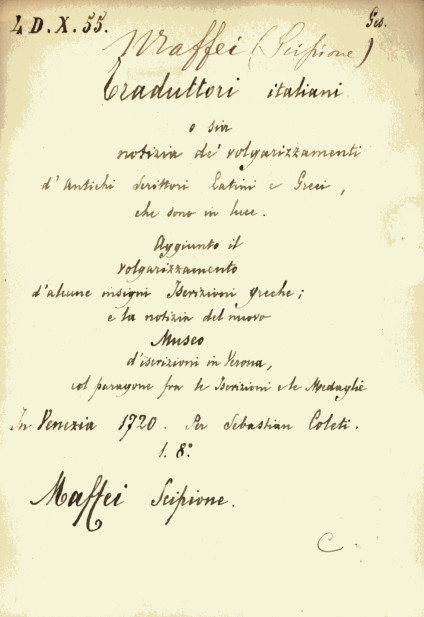 4 D.X.55.
Ges.
Maffei (Scipione)
Traduttori italiani
o sia
notizia de' volgarizzamenti
d'Antichi Scrittori Latini e Greci,
che sono in luce.
Aggiunto il
volgarizzamento
d'alcune insigni Iscrizioni greche;
e la notizia del nuovo
Museo
d'iscrizioni in Verona,
col paragone fra le Iscrizioni e le Medaglie
In Venezia 1720. Per Sebastian Coleti.
1. 8.°
Maffei Scipione.
C